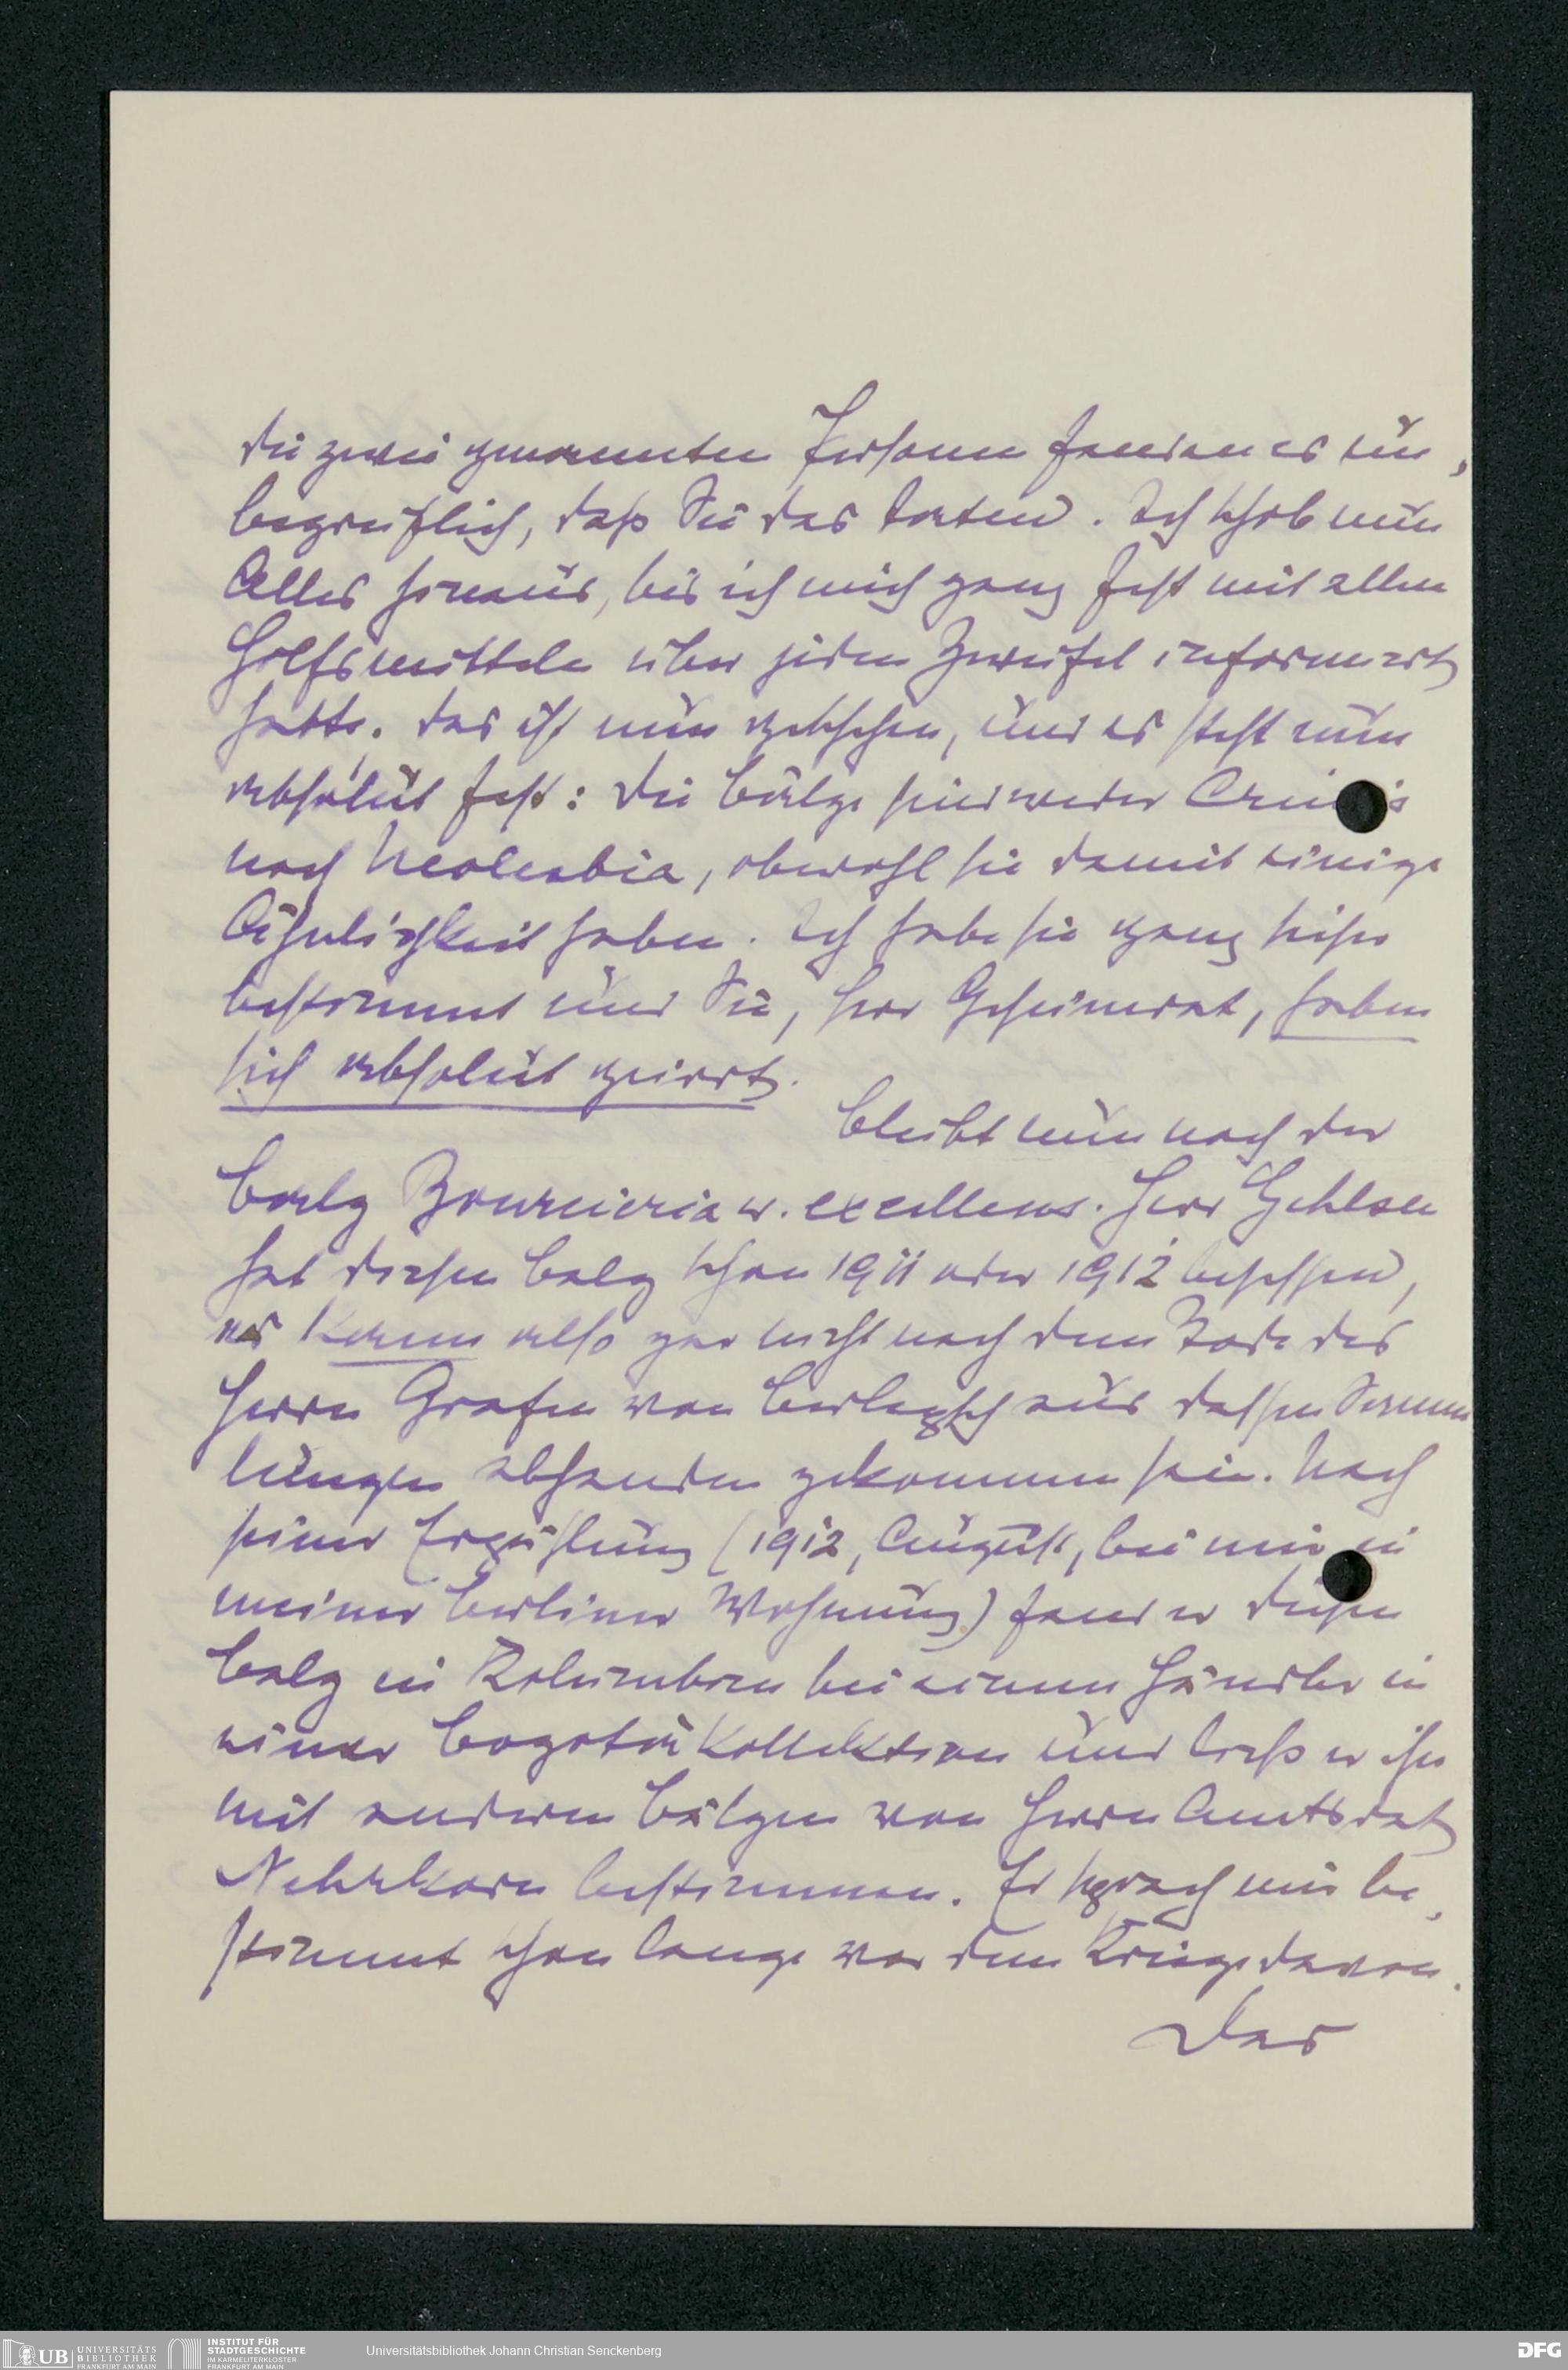 die zwei genannten Personen fanden es un-
begreiflich, daß Sie das taten. Ich schob nun
Alles hinaus, bis ich mich ganz fest mit allen
Hilfsmitteln über jeden Zweifel informiert
hatte. Das ist nun geschehen, und es steht nun
absolut fest: Die Bälge sind weder
noch Neolesbia, obwohl sie damit einige
Ähnlichkeit haben. Ich habe sie ganz sicher
bestimmt und Sie, Herr Geheimrat, haben
sich absolut geirrt.
Bleibt nun noch der
Balg Bourcieria w. excellens. Herr Gehlsen
hat diesen Balg schon 1911 oder 1912 besessen,
er kann also gar nicht nach dem Tode des
Herrn Grafen von Berlepsch aus dessen Samm
lungen abhanden gekommen sein. Nach
seiner Erzählung (1912, August, bei mir in
meiner Berliner Wohnung) fand er diesen
Balg in Kolumbien bei einem Händler in
einer Bogotá Kollektion und ließ er ihn
mit anderen Bälgen von Herrn Amtsrat
Nehrkorn bestimmen. Er sprach mir be-
stimmt schon lange vor dem Kriege davon.
Das
UB UNIVERSITÄTS
BIBLIOTHEK
FRANKFURT AM MAIN
INSTITUT FÜR
STADTGESCHICHTE
IM KARMELITERKLOSTER
FRANKFURT AM MAIN
Universitätsbibliothek Johann Christian Senckenberg
DFG